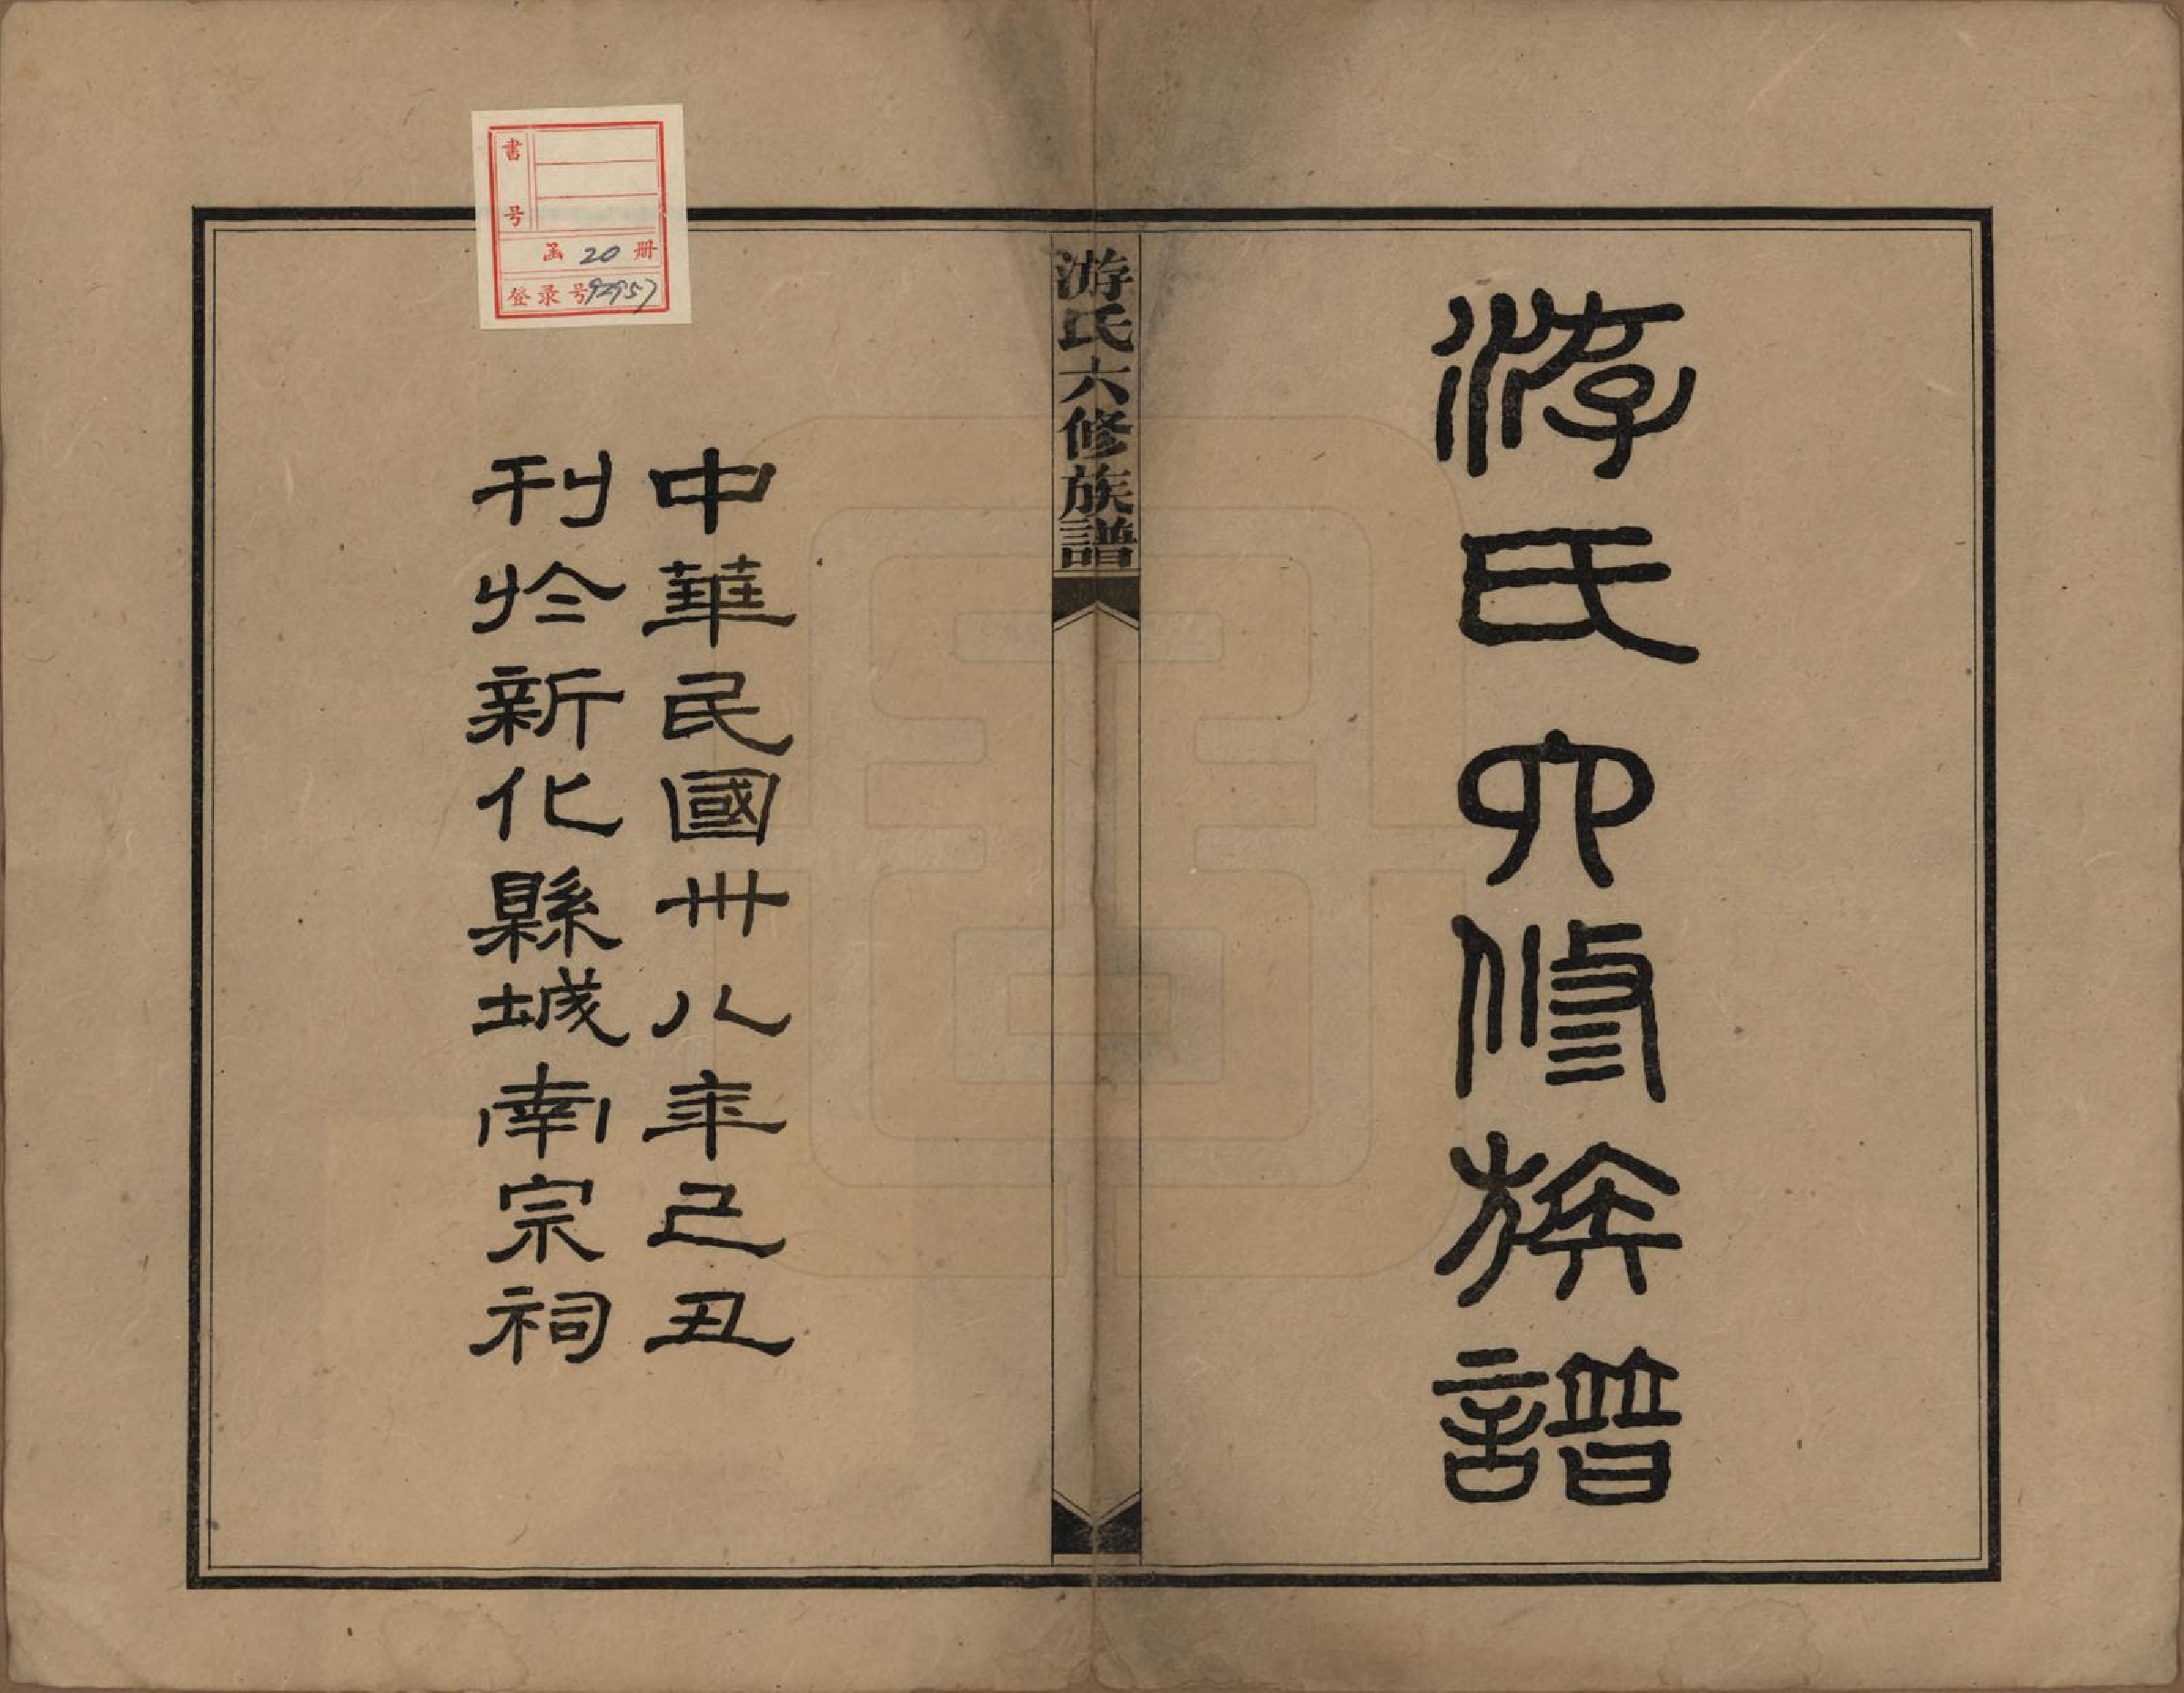 游氏六修族譜
游氏六修族譜
中華民國卅八年己丑
刊於新化縣城南宗祠
書号
函 20 册
登录号 92957